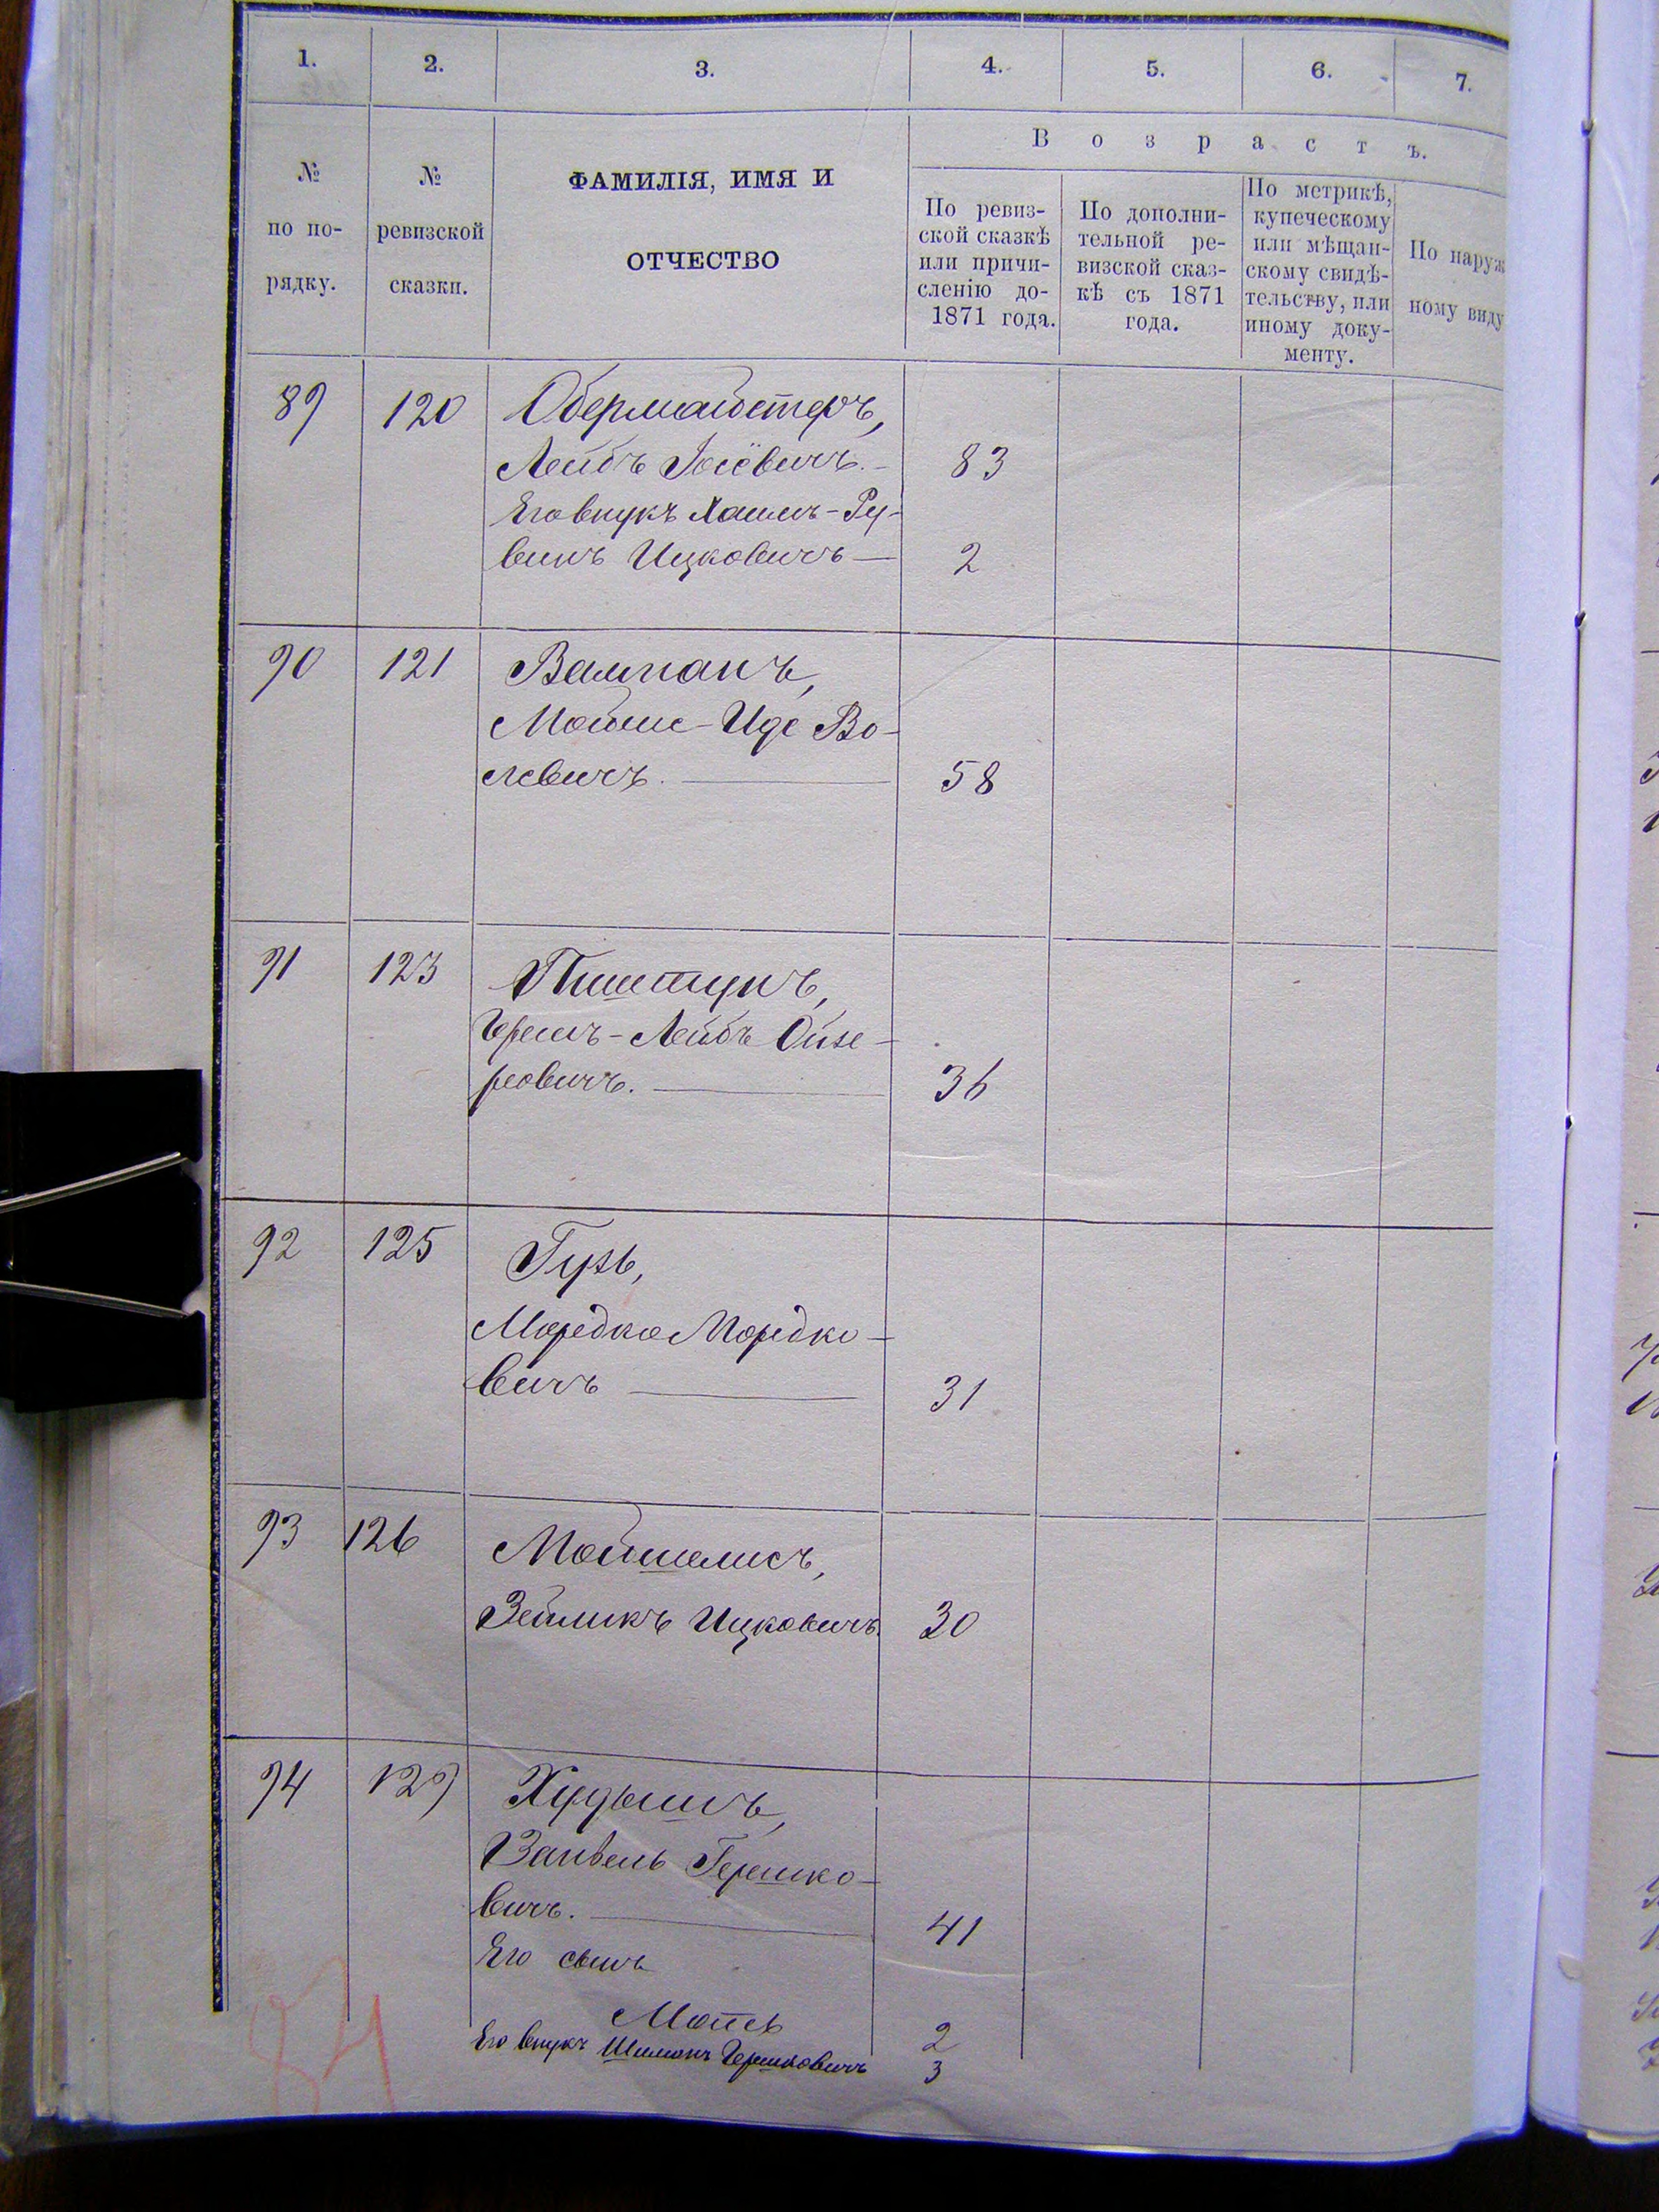 1. 2. 3. 4. 5. 6. 7.
Возрастъ.
№ по по-
рядку.
№
ревизской
сказки.
ФАМИЛІЯ, ИМЯ И
ОТЧЕСТВО
По ревиз-
ской сказкѣ
или причи-
сленію до-
1871 года.
По дополни-
тельной ре-
визской сказ-
кѣ съ 1871
года.
По метрикѣ,
купеческому
или мѣщан-
скому свидѣ-
тельству, или
иному доку-
менту.
По наруж
ному виду
89 120 Обермайстеръ,
Лейбъ Іосёвичъ. 83
Его внукъ Хаимъ-Ру-
винъ Ицковичъ — 2
90 121 Вампанъ,
Мойше-Иде Во-
левичъ. — 58
91 123 Пшетунъ,
Герешъ-Лейбъ Ойзе-
ровичъ. — 36
92 125 Гузь,
Мордко Мордко-
вичъ — 31
93 126 Мойшелисъ,
Зейликъ Ицковичъ. 30
94 129 Худышъ,
Занвель Гершко-
вичъ. — 41
Его сынъ
Мотель 2
Его внукъ Шимонъ Гершковичъ 3
84